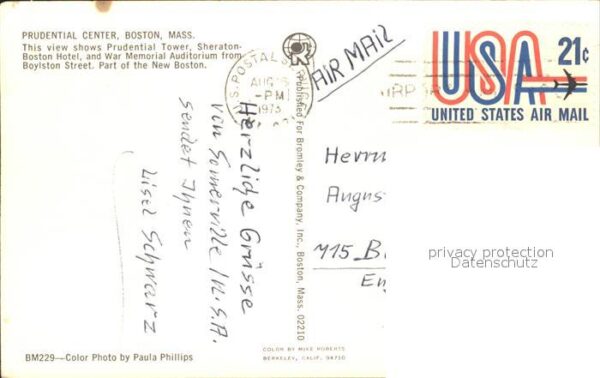 PRUDENTIAL CENTER, BOSTON, MASS.
This view shows Prudential Tower, Sheraton-
Boston Hotel, and War Memorial Auditorium from
Boylston Street. Part of the New Boston.
AIR MAIL
U.S. POSTAL
AUG
PM
1973
USA 21¢
UNITED STATES AIR MAIL
Herzliche Grüsse
von Somerville / M. S.A.
sendet Ihnen
Lisel Schwarz
Published For Bromley & Company, Inc., Boston, Mass. 02210
Herrn
Augus
715 B
En
privacy protection
Datenschutz
BM229—Color Photo by Paula Phillips
COLOR BY MIKE ROBERTS
BERKELEY, CALIF. 94710